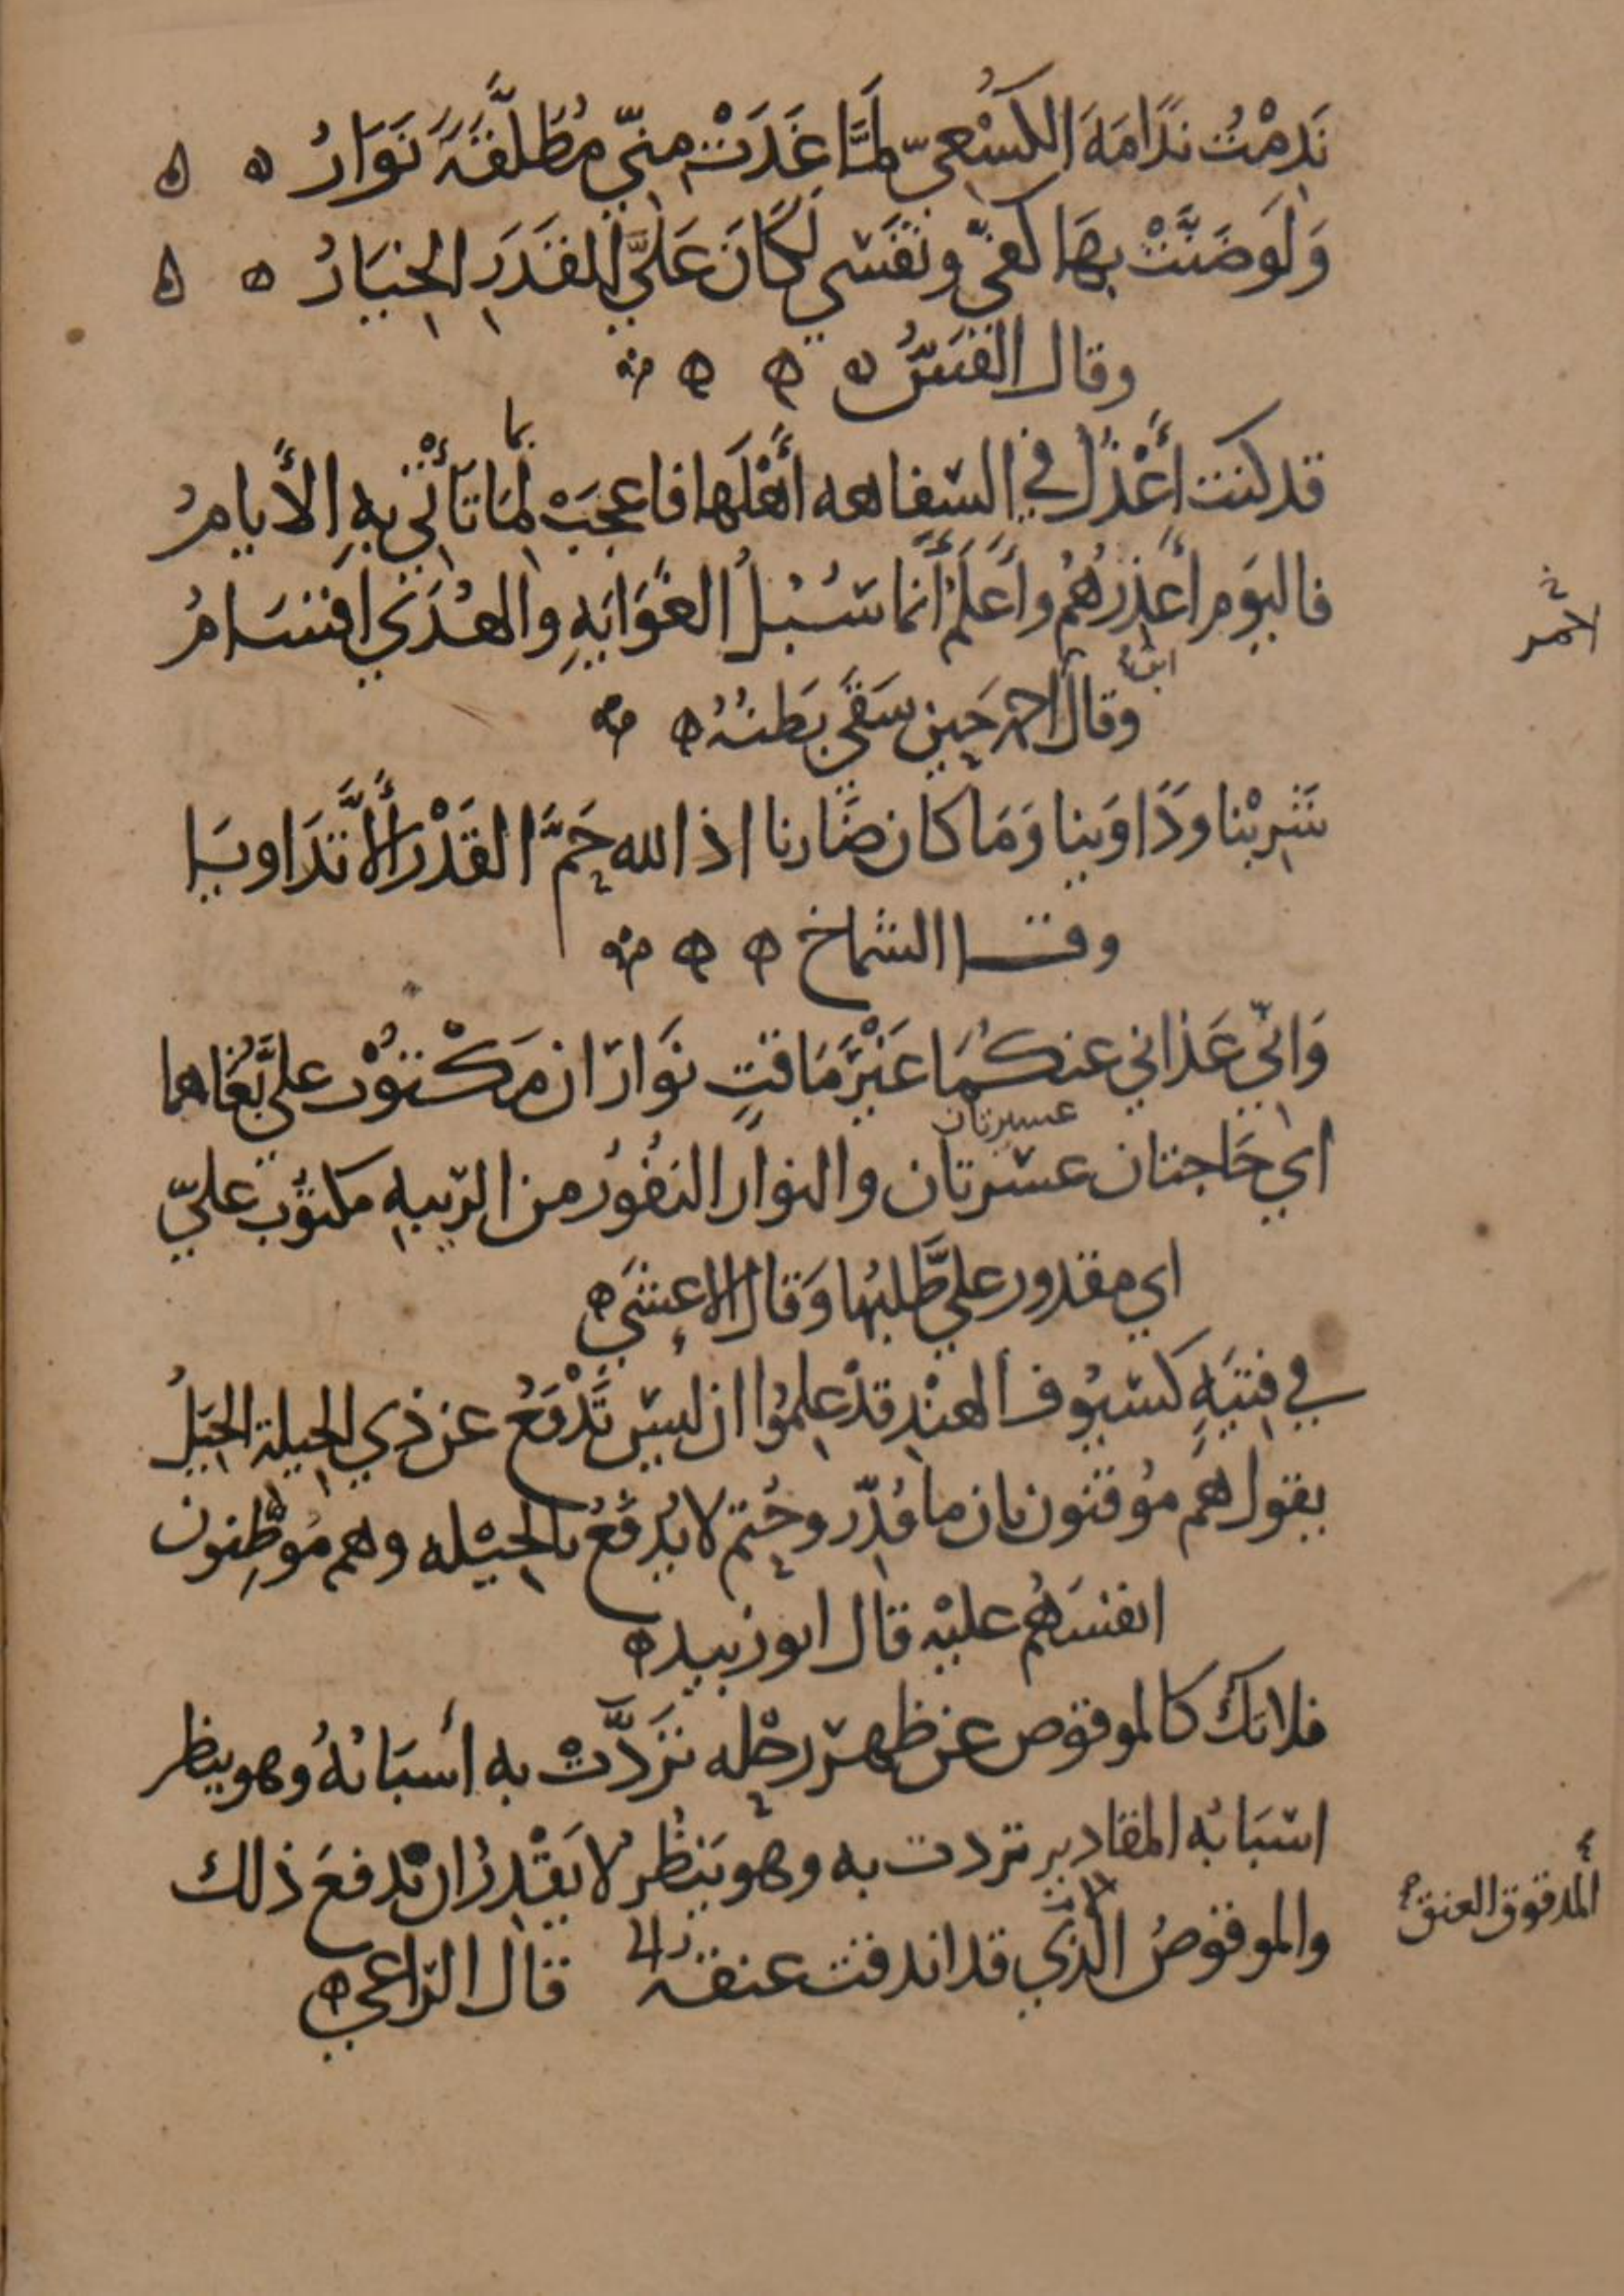 نَدِمْتُ نَدَامَةَ الكُسَعِيّ لَمَّا غَدَتْ مِنّي مُطَلَّقَةً نَوَارُ ه ه
وَلَو ضَنَّتْ بِهَا كَفّي ونَفْسي لَكَانَ عَلَيَّ لِلقَدَرِ الخِيَارُ ه ه
وقال القَسُّ ه ه ه
قد كنت أَعْذُلُ في السّفاهه أَهْلَها فاعجَبْ لِمَا تَأْتي بِهِ الأَيامُ
بما
فاليَوم أَعذِرُهُم وأَعلَمُ أَنما سُبُلُ الغَوَايَهِ والهُدَي اقسَامُ
احمر
وقال ابن احمر حِين سَقَي بَطنُهُ ه
شَرِبْنا ودَاوَينا وَمَا كان ضَارنا اذ الله حَمَّ القَدْرَ أَلَّا تَدَاويَا
وقال الشماخ ه ه
وَانّي عَذاني عنكُمَا غَيْرَ مَاقتٍ نَوَارَان مَكْتوُبٌ عليَّ بُغَاهما
اي حَاجتان عسَرتان والنوار النفُورُ من الرّيبهِ مكتوُب عليّ
عسيرتان
اي مقدور عليَّ طلبُها وَقال الاعشَي ه
في فِتيَهٍ كسيُوف الهنْدِ قدْ علِمُوا ان ليسَ تَدْفَعُ عن ذي الحيلة الحِيَلُ
يقول هُم مُوقنون بان ما قُدِّر وحُتم لا يُدفَعُ بالحِيْله وهم مُوَطِّنون
انفسَهُم عليْهِ قال ابو زبيد ه
فلا تكُ كالموقوص عن ظهرِ رحْله تَرَدَّتْ به أسبَابُهُ وهو ينظر
اسْبَابُه المقادير تردت به وهو يَنظُرُ لا يَقْدِرُ ان يدفعَ ذلك
والموقوصُ الذي قد اندقت عنقه قال الرّاعي ه
المدقوق العنق